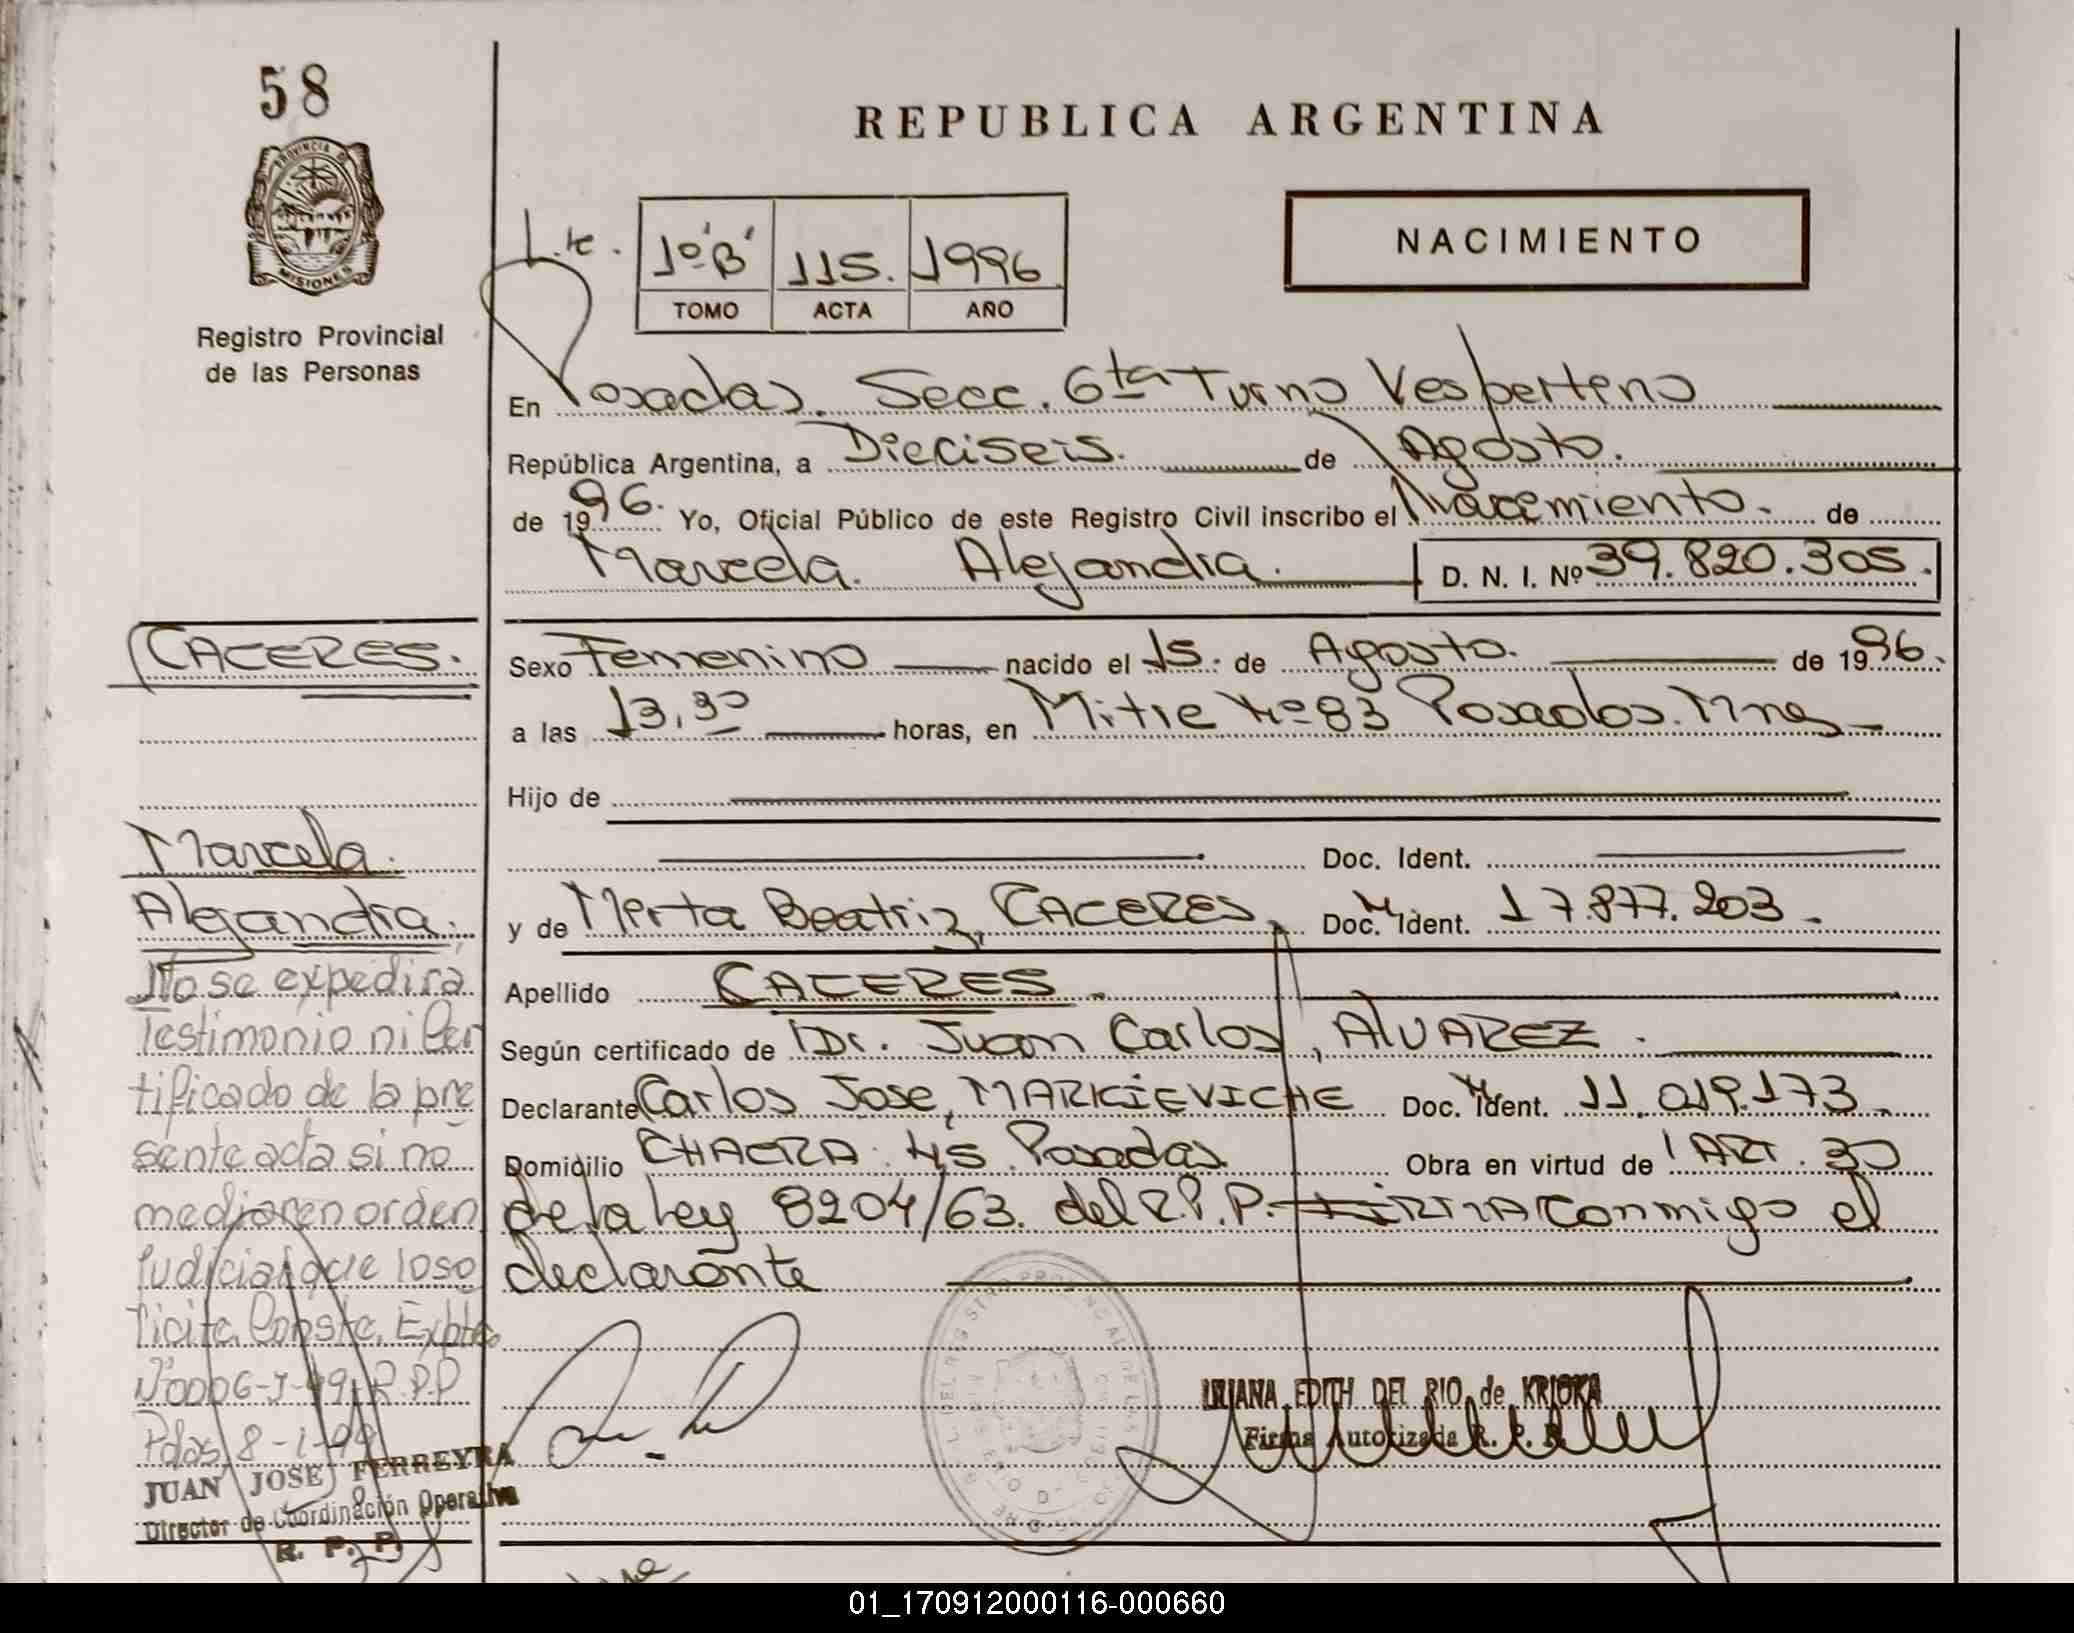 58
REPUBLICA ARGENTINA
PROVINCIA DE
MISIONES
Registro Provincial
de las Personas
1º "B" 115. 1996
TOMO ACTA AÑO
NACIMIENTO
En Posadas. Secc. 6ta Turno Vespertino
República Argentina, a Dieciseis. de Agosto.
de 1996. Yo, Oficial Público de este Registro Civil inscribo el Nacimiento. de
Marcela. Alejandra. D. N. I. Nº 39.820.305.
CACERES.
Sexo Femenino nacido el 15. de Agosto. de 1996.
a las 13,30 horas, en Mitre Nº 83 Posadas. Mnes
Hijo de
Doc. Ident.
y de Mirta Beatriz, CACERES, Doc. Ident. 17.877.203.
Apellido CACERES.
Según certificado de Dr. Juan Carlos, ALVAREZ.
Declarante Carlos Jose, MARKIEVICHE Doc. Ident. 11.019.173.
Domicilio CHACRA. 45 Posadas Obra en virtud de ART. 30
de la Ley 8204/63. del R.P.P. FIRMA conmigo el
declarante
Marcela.
Alejandra.
No se expedirá
Testimonio ni Cer
tificado de la pre
sente acta si no
mediaren orden
Judicial que lo so
licite. Conste. Expte
Nº 0006-J-99-R.P.P
Pdas 8-1-99
JUAN JOSE FERREYRA
Director de Coordinación Operativa
R. P. P.
LILIANA EDITH DEL RIO de KRIOKA
Firma Autorizada R. P. P.
01_170912000116-000660